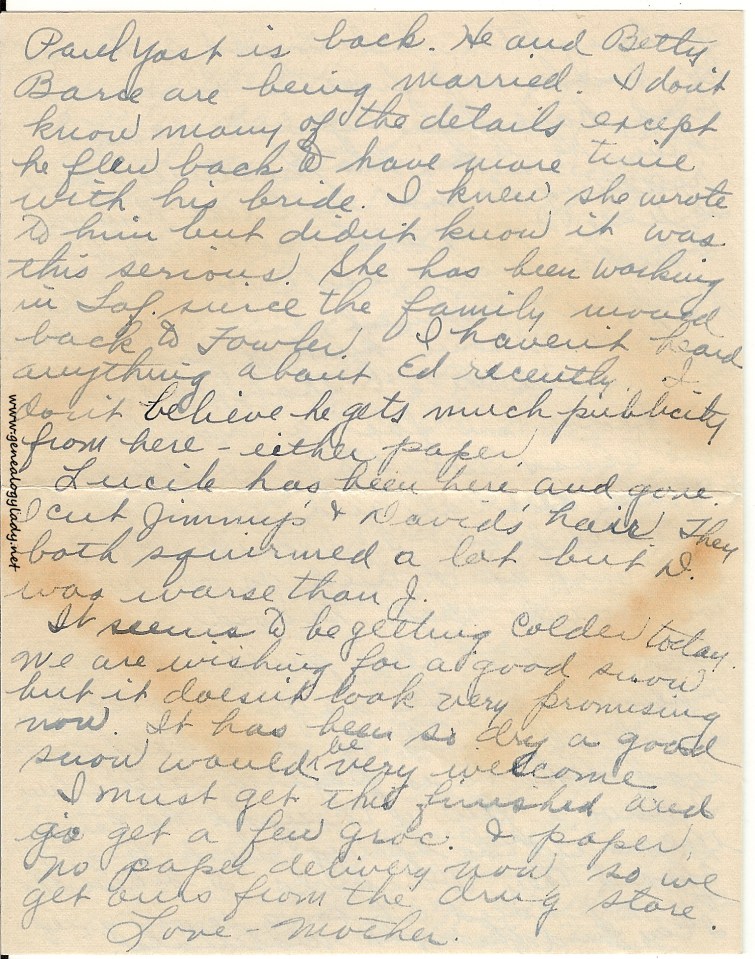 Paul Yost is back. He and Betty
Barce are being married. I don't
know many of the details except
he flew back to have more time
with his bride. I knew she wrote
to him but didn't know it was
this serious. She has been working
in Laf. since the family moved
back to Fowler. I haven't heard
anything about Ed recently. I
don't believe he gets much publicity
from here - either paper.
Lucile has been here and gone.
I cut Jimmy's & David's hair. They
both squirmed a lot but D.
was worse than J.
It seems to be getting colder today.
We are wishing for a good snow
but it doesn't look very promising
now. It has been so dry a good
snow would be very welcome
I must get this finished and
go get a few groc. & paper.
No paper delivery now so we
get ours from the drug store.
Love - Mother.
www.genealogylady.net